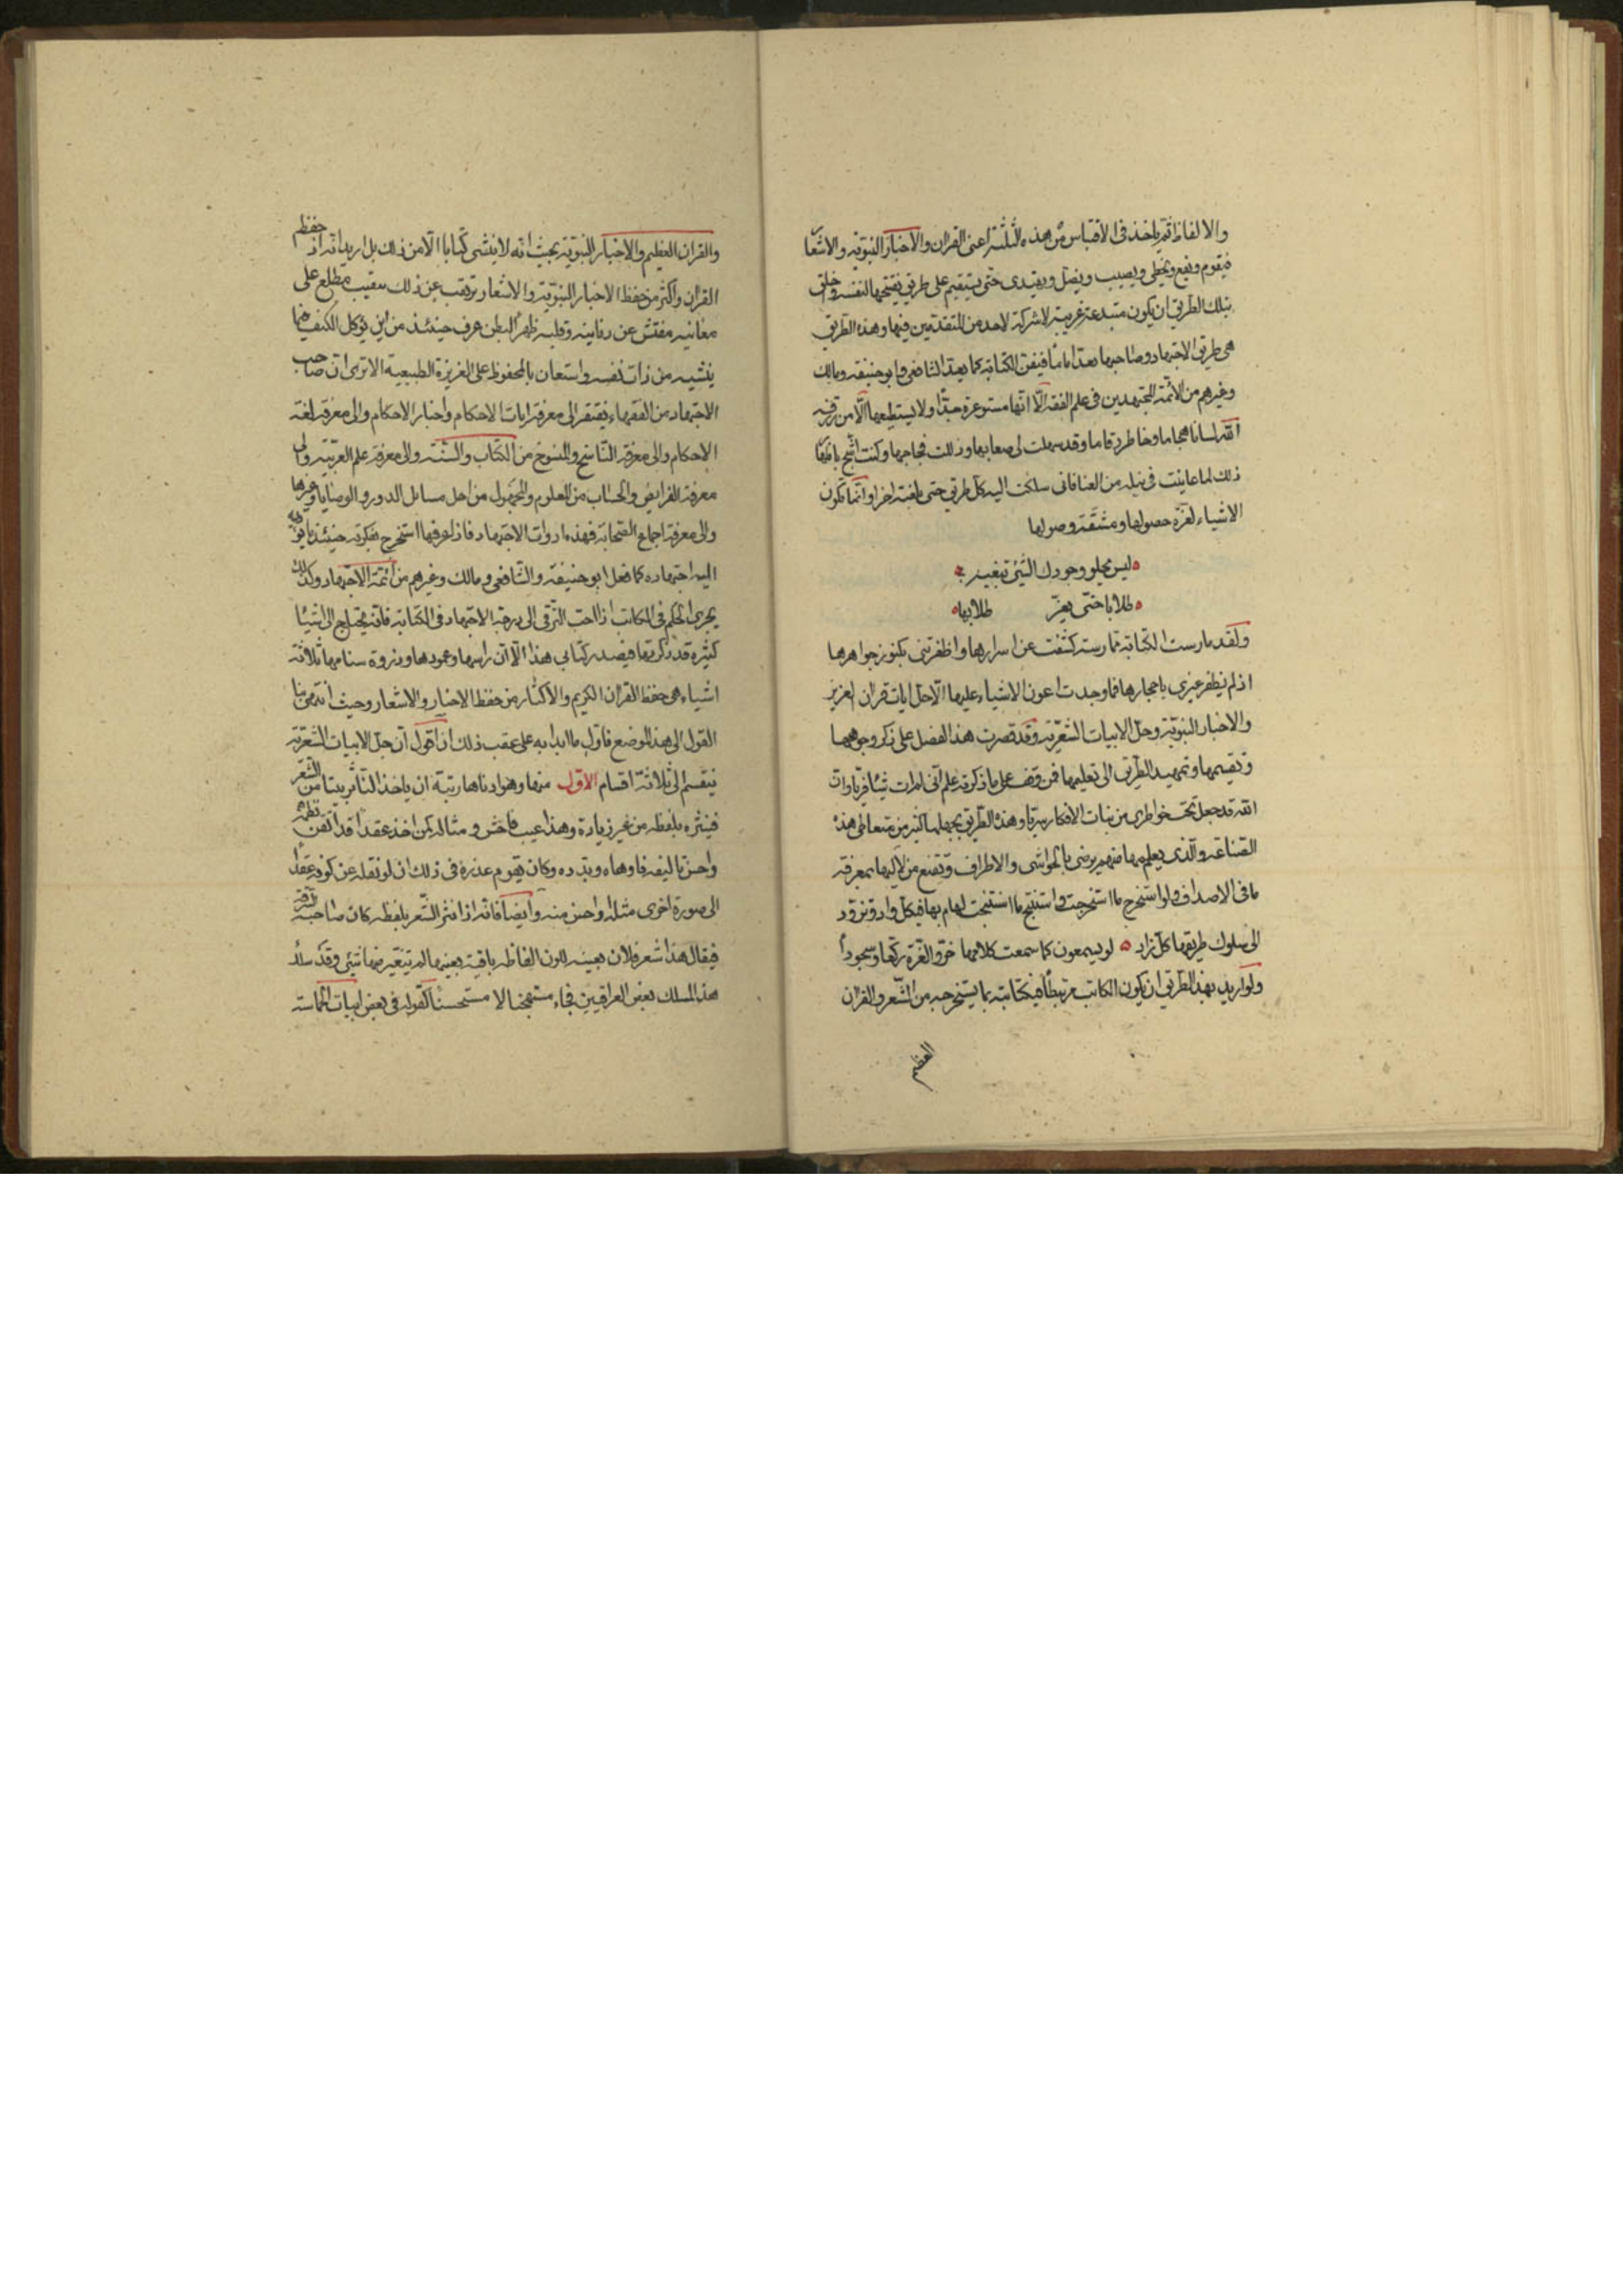 والالفاظ ثم ياخذ فى الاقتباس من هذه الثلثة اعنى القران والاخبار النبوية والاشعار
فيقوم ويقع ويخطى ويصيب ويضل ويهتدى حتى يستقيم على طريق يفتتحها لنفسه واخلق
بتلك الطريق ان يكون مبتدعة غريبة لا شركة لاحد من المتقدمين فيها وهذه الطريق
هى طريق الاجتهاد وصاحبها يعد اماما فى فن الكتابة كما يعد الشافعى وابو حنيفه ومالك
وغيرهم من الائمة المجتهدين فى علم الفقه الا انها مستوعرة جدا ولا يستطيعها الا من رزقه
الله لسانا هجاما وخاطرا رقاما وقد سهلت لى صعابها وذللت فجاجها وكنت اشح باظهار
ذلك لما عانيت فى نيله من العنا فانى سلكت اليه كل طريق حتى بلغته اخرا وانما تكون
الاشياء لعزة حصولها ومشقة وصولها
ليس يحلو وجودك الشئ تبغيه
طلابا حتى يعز طلابها
ولقد مارست الكتابة ممارسة كشفت عن اسرارها واظفرتنى بكنوز جواهرها
اذ لم يظفر غيرى باحجارها فما وجدت اعون الاشياء عليها الا حل ايات قران العزيز
والاخبار النبوية وحل الابيات الشعرية وقد قصرت هذا الفصل على ذكر وجوهها
وتقسيمها وتمهيد الطريق الى تعليمها فمن وقف على ما ذكرته علم انى لم ات شيئا فريا وان
الله قد جعل تحت خواطرى من بنات الافكار سريا وهذه الطريق يجهلها كثير من متعاطى هذه
الصناعة والذى يعلمها منهم يرضى بالحواشى والاطراف ويقنع من لاليها بمعرفة
ما فى الاصداف ولو استخرج ما استخرجت واستنتج ما استنتجت لهام بها فى كل واد وتزود
الى سلوك طريقها كل زاد لو يسمعون كما سمعت كلامها خروا لعزة ركعا وسجودا
ولو اريد بهذا الطريق ان يكون الكاتب مرتبطا فى كتابته بما يستخرجه من الشعر والقران
العظيم
والقران العظيم والاخبار النبوية بحيث انه لا ينشى كتابا الا من ذلك بل اريد انه اذا حفظ
القران واكثر من حفظ الاخبار النبوية والاشعار ثم نقب عن ذلك تنقيب مطلع على
معانيه مفتش عن دفاينه وقلبه ظهرا لبطن عرف حينئذ من اين تؤكل الكتف فيما
ينشيه من ذات نفسه واستعان بالمحفوظ على الغريزة الطبيعية الا ترى ان صاحب
الاجتهاد من الفقهاء يفتقر الى معرفة ايات الاحكام واخبار الاحكام والى معرفة لغة
الاحكام والى معرفة الناسخ والمنسوخ من الكتاب والسنة والى معرفة علم العربية والى
معرفة الفرايض والحساب من المعلوم والمجهول من اجل مسايل الدور والوصايا وغيرها
والى معرفة اجماع الصحابة فهذه ادوات الاجتهاد فاذا عرفها استخرج بفكرته حينئذ ما يؤديه
اليه اجتهاده كما فعل ابو حنيفة والشافعى ومالك وغيرهم من ائمة الاجتهاد وكذلك
يجرى الحكم فى الكاتب اذا احب الترقى الى درجة الاجتهاد فى الكتابة فانه يحتاج الى اشيا
كثيرة قد ذكرتها فى صدر كتابى هذا الا ان راسها وعمودها وذروة سنامها ثلاثة
اشياء هى حفظ القران الكريم والاكثار من حفظ الاخبار والاشعار وحيث انتهى بنا
القول الى هذا الموضع فاول ما ابدا به على عقب ذلك ان اقول ان حل الابيات الشعرية
ينقسم الى ثلاثة اقسام الاول منها وهو ادناها رتبة ان ياخذ الناثر بيتا من الشعر
فينثره بلفظه من غير زيادة وهذا عيب فاحش ومثاله كمن اخذ عقدا قد اتقن نظمه
واحسن تاليفه فاوهاه وبدده وكان يقوم عذره فى ذلك ان لو نقله عن كونه عقدا
الى صورة اخرى مثله او احسن منه وايضا فانه اذا نثر الشعر بلفظه كان صاحبه
فيقال هذا شعر فلان بعينه لكون الفاظه باقية بعينها لم يتغير منها شئ وقد سلك
هذا المسلك بعض العراقيين فجاء مستهجنا لا مستحسنا كقوله فى بعض ابيات الحماسة